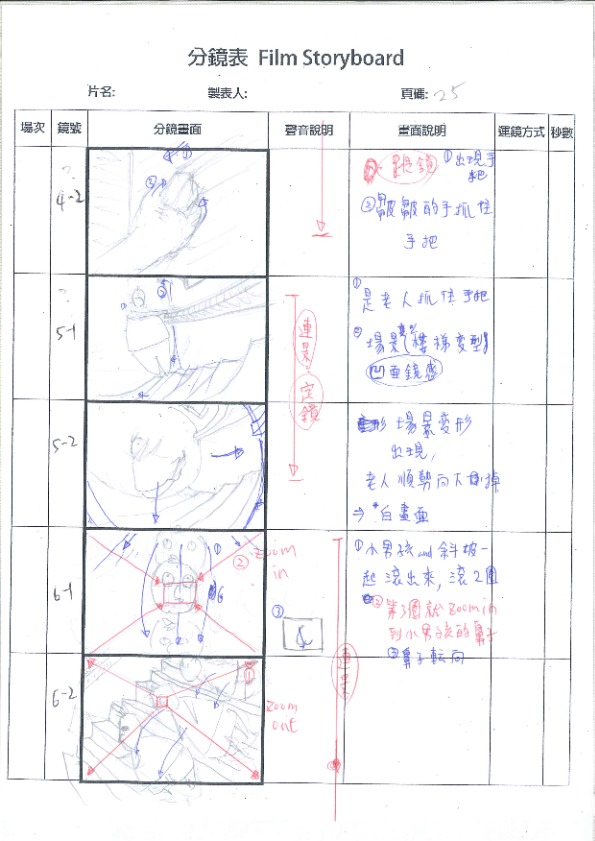 分鏡表 Film Storyboard
片名:
製表人:
頁碼: 25
場次 鏡號 分鏡畫面 聲音說明 畫面說明 運鏡方式 秒數
?
4-2
① 出現手
把
②皺皺的手抓住
手把
?
5-1
連景
定鏡
①
是老人抓住手把
② 場景
樓梯变型
凹面鏡感
5-2
場景变形
出現,
老人順勢向下倒掉
⇒ *白畫面
6-1
② Zoom
in
③
①小男孩and斜坡一
起滾出來,滾2圈
②第3圈就zoom in
到小男孩的鼻子
③鼻子転向
連景
6-2
①
Zoom
out